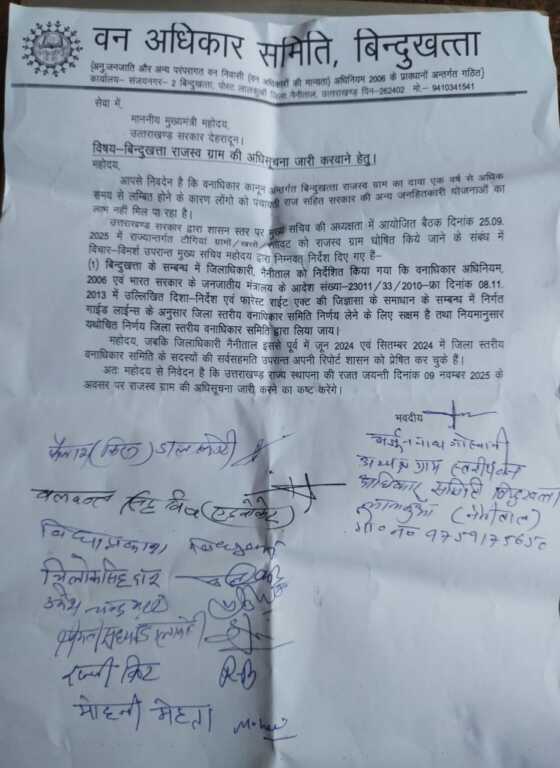 वन अधिकार समिति, बिन्दुखत्ता
{अनुजनजाति और अन्य परंपरागत वन निवासी (वन अधिकारों की मान्यता) अधिनियम 2006 के प्राक्धानों अन्तर्गत गठित}
कार्यालय– संजयनगर– 2 बिन्दुखत्ता, पोस्ट लालकुआँ जिला नैनीताल, उत्तराखण्ड पिन–262402 मो.– 9410341541
सेवा में,
माननीय मुख्यमंत्री महोदय,
उत्तराखण्ड सरकार देहरादून।
विषय–बिन्दुखत्ता राजस्व ग्राम की अधिसूचना जारी करवाने हेतु।
महोदय,
आपसे निवदेन है कि वनाधिकार कानून अन्तर्गत बिन्दुखत्ता राजस्व ग्राम का दावा एक वर्ष से अधिक
समय से लम्बित होने के कारण लोंगो को पंचायती राज सहित सरकार की अन्य जनहितकारी योजनाओं का
लाभ नहीं मिल पा रहा है।
उत्तराखण्ड सरकार द्वारा शासन स्तर पर मुख्य सचिव की अध्यक्षता में आयोजित बैठक दिनांक 25.09.
2025 में राज्यान्तर्गत टौंगियां ग्रामों/खत्तों/ को राजस्व ग्राम घोषित किये जाने के संबंध में
विचार–विमर्श उपरान्त मुख्य सचिव महोदय द्वारा निम्नवत् निर्देश दिए गए है–
(1) बिन्दुखत्ता के सम्बन्ध में जिलाधिकारी, नैनीताल को निर्देशित किया गया कि वनाधिकार अधिनियम,
2006 एवं भारत सरकार के जनजातीय मंत्रालय के आदेश संख्या–23011/33/2010–फ्रा दिनांक 08.11.
2013 में उल्लिखित दिशा–निर्देश एवं फारेस्ट राईट एक्ट की जिज्ञासा के समाधान के सम्बन्ध में निर्गत
गाईड लाईन्स के अनुसार जिला स्तरीय वनाधिकार समिति निर्णय लेने के लिए सक्षम है तथा नियमानुसार
यथोचित निर्णय जिला स्तरीय वनाधिकार समिति द्वारा लिया जाय।
महोदय, जबकि जिलाधिकारी नैनीताल इससे पूर्व में जून 2024 एवं सितम्बर 2024 में जिला स्तरीय
वनाधिकार समिति के सदस्यों की सर्वसहमति उपरान्त अपनी रिपोर्ट शासन को प्रेषित कर चुके हैं।
अतः महोदय से निवेदन है कि उत्तराखण्ड राज्य स्थापना की रजत जयन्ती दिनांक 09 नवम्बर 2025 के
अवसर पर राजस्व ग्राम की अधिसूचना जारी करने का कष्ट करेंगे।
भवदीय
अर्जुन नाथ गोस्वामी
अध्यक्ष ग्राम स्तरीय वन
अधिकार समिति बिंदुखत्ता
लालकुआं (नैनीताल)
मो० न० 9759175650
बलवन्त सिंह (एडवोकेट)
विद्याप्रकाश
त्रिलोकसिंह
उमेश चन्द्र भट्ट
R-B
मोहनी मेहता